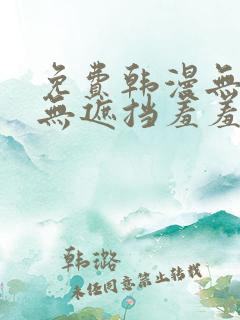 免費韩漫無
無遮挡羞羞
韩潞
未经同意禁止转载